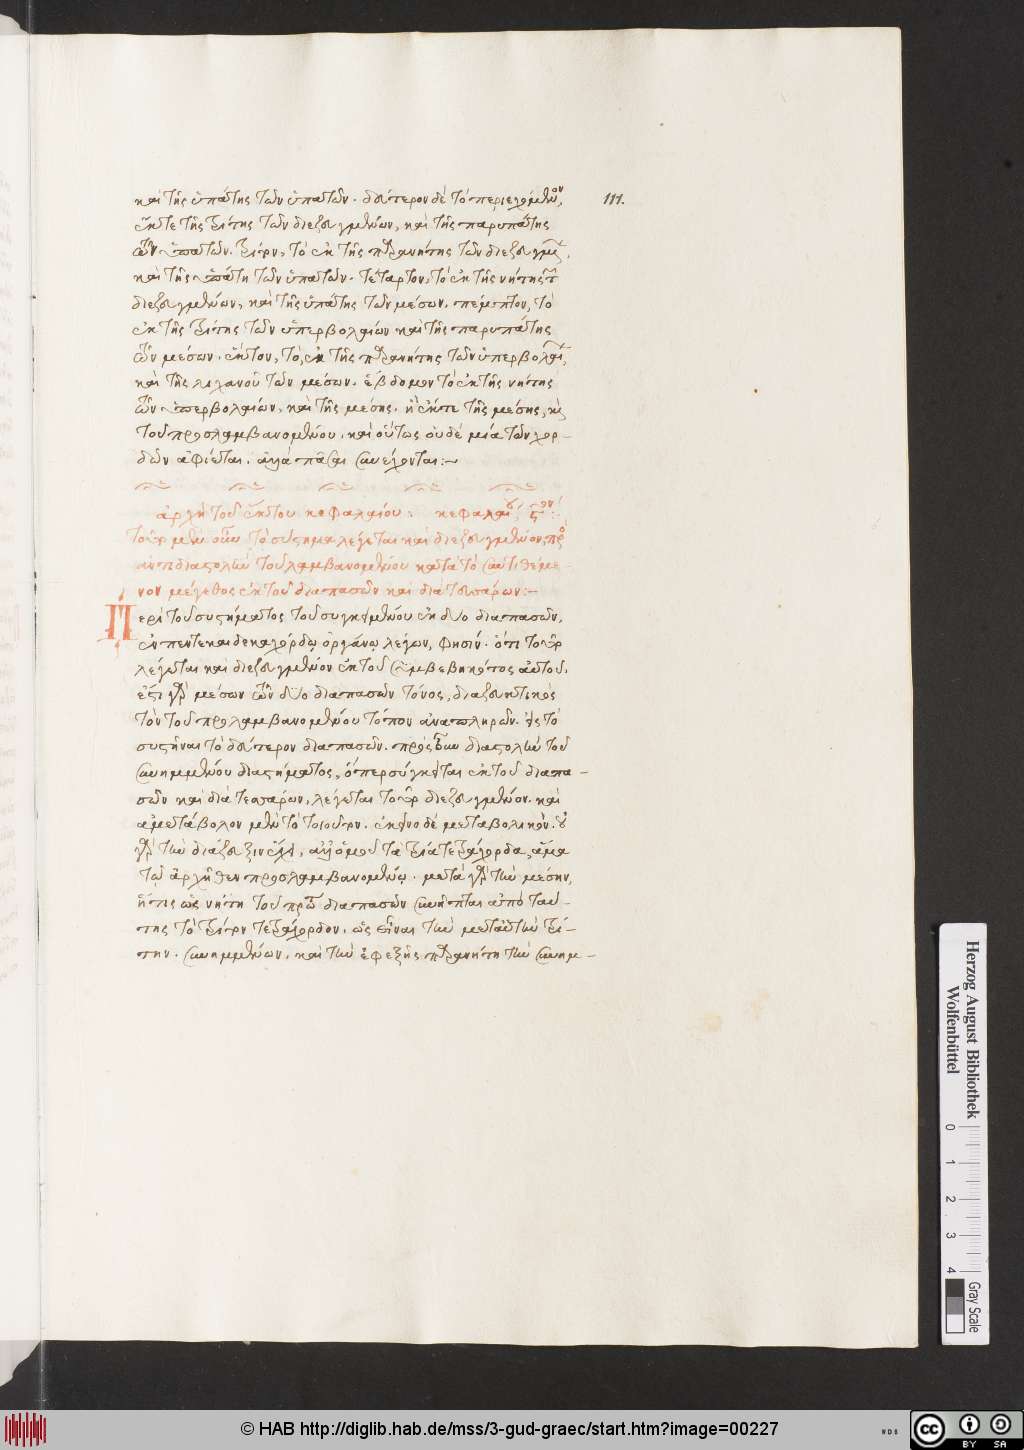 καὶ τῆς ὑπάτης τῶν ὑπατῶν. δεύτερον δὲ τὸ περιεχόμενον,
111.
ἔκ τε τῆς τρίτης τῶν διεζευγμένων, καὶ τῆς παρυπάτης
τῶν ὑπατῶν. τρίτον, τὸ ἐκ τῆς παρανήτης τῶν διεζευγμένων,
καὶ τῆς ὑπάτη τῶν ὑπατῶν. τέταρτον, τὸ ἐκ τῆς νήτης τῶν
διεζευγμένων, καὶ τῆς ὑπάτης τῶν μέσων. πέμπτον, τὸ
ἐκ τῆς τρίτης τῶν ὑπερβολαίων καὶ τῆς παρυπάτης
τῶν μέσων. ἕκτον, τὸ, ἐκ τῆς παρανήτης τῶν ὑπερβολαίων,
καὶ τῆς λιχανοῦ τῶν μέσων. ἕβδομον τὸ ἐκ τῆς νήτης
τῶν ὑπερβολαίων, καὶ τῆς μέσης. ἢ ἔκ τε τῆς μέσης, καὶ
τοῦ προσλαμβανομένου. καὶ οὕτως οὐδὲ μία τῶν χορ-
δῶν ἀφίεται. ἀλλὰ πᾶσαι συνέχονται:~
ἀρχὴ τοῦ ἕκτου κεφαλαίου: κεφάλαιον ϛον:
τὸ μὲν οὖν τὸ σύστημα λέγεται καὶ διεζευγμένον, πρὸς
ἀντιδιαστολὴν τοῦ λαμβανομένου κατὰ τὸ συντιθέμε-
νον μέγεθος ἐκ τοῦ διαπασῶν καὶ διατεσσάρων:~
Περὶ τοῦ συστήματος τοῦ συγκειμένου ἐκ δύο διαπασῶν,
ἐν πεντεκαιδεκαχόρδῳ ὀργάνῳ λέγων, φησίν. ὅτι
λέγεται καὶ διεζευγμένον ἐκ τοῦ συμβεβηκότος αὐτοῦ.
ἔστι γὰρ μέσων τῶν δύο διαπασῶν τόνος, διαζευκτικὸς
τὸν τοῦ προσλαμβανομένου τόπον ἀναπληρῶν. εἰς τὸ
συστῆναι τὸ δεύτερον διαπασῶν. πρὸς οὖν διαστολὴν τοῦ
συνημμένου διαστήματος, ὅπερ σύγκειται ἐκ τοῦ διαπα-
σῶν καὶ διὰ τεσσάρων, λέγεται διεζευγμένον. καὶ
ἀμετάβολον μὲν τὸ τοιοῦτον. ἐκεῖνο δὲ μεταβολικόν. οὐ
γὰρ τὴν διάζευξιν ἔχει, ἀλλ' ὁμοῦ τὰ τρία τετράχορδα, ἅμα
τῷ ἀρχῆθεν προσλαμβανομένῳ. μετὰ γὰρ τὴν μέσην,
ἥτις ὡς νήτη τοῦ πρώτου διαπασῶν συνῆπται ἀπὸ ταύ-
της τὸ τρίτον τετράχορδον. ὡς εἶναι τὴν μετ' αὐτὴν τρί-
την. συνημμένων. καὶ τὴν ἐφεξῆς παρανήτη τὴν συνημ-
Herzog August Bibliothek
Wolfenbüttel
0 1 2 3 4
Gray Scale
© HAB http://diglib.hab.de/mss/3-gud-graec/start.htm?image=00227
WDB
CC BY SA